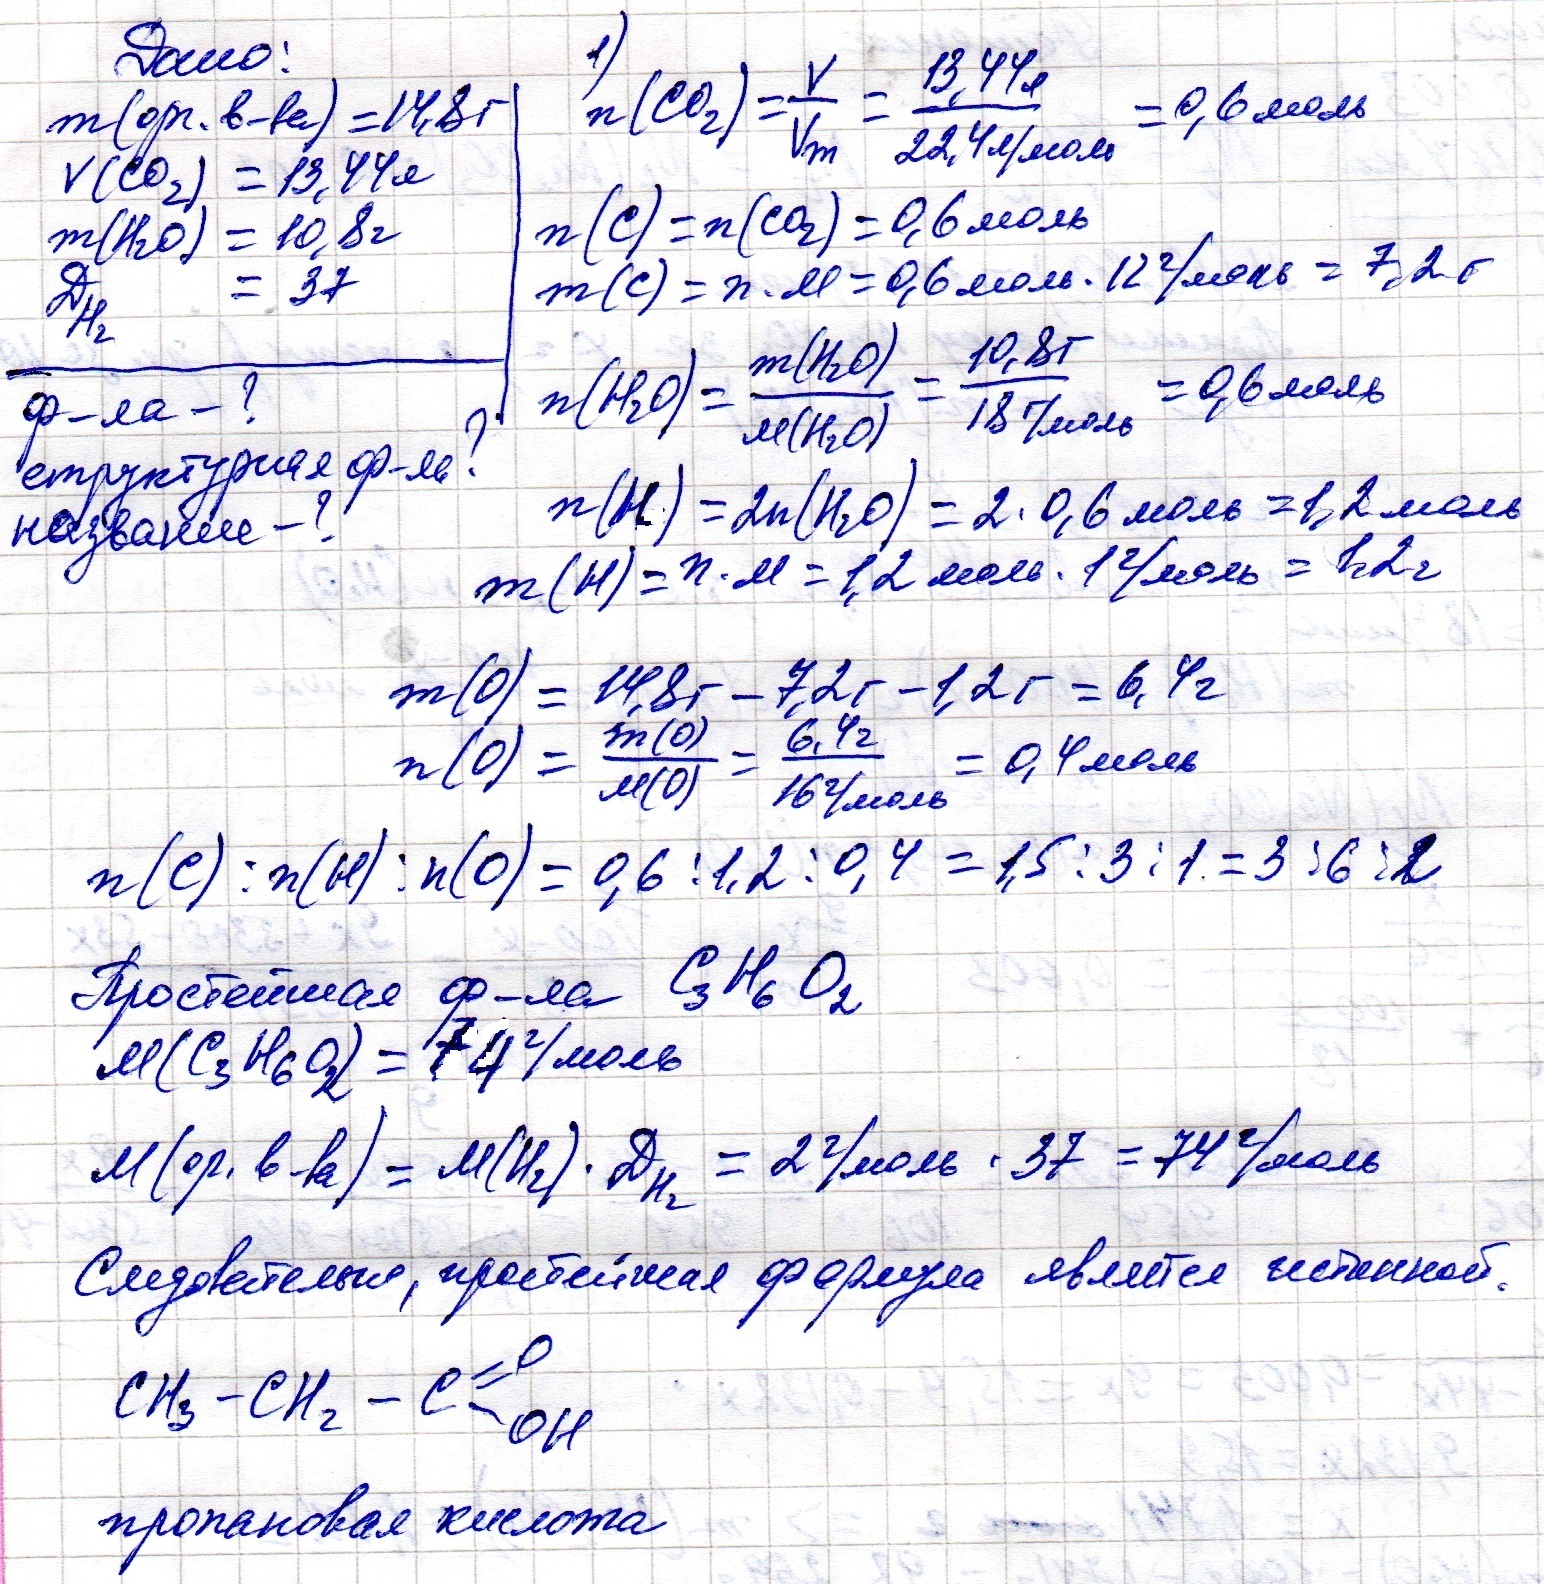 Дано:
m(орг. в-ва) = 14,8г
V(CO₂) = 13,44л
m(H₂O) = 10,8г
D_H₂ = 37
ф-ла - ?
структурная ф-ла ?
название - ?
1)
n(CO₂) = V/Vm = 13,44л/22,4л/моль = 0,6 моль
n(C) = n(CO₂) = 0,6 моль
m(C) = n·M = 0,6 моль · 12 г/моль = 7,2 г
n(H₂O) = m(H₂O)/M(H₂O) = 10,8г/18г/моль = 0,6 моль
n(H) = 2n(H₂O) = 2·0,6 моль = 1,2 моль
m(H) = n·M = 1,2 моль · 1 г/моль = 1,2г
m(O) = 14,8г - 7,2г - 1,2г = 6,4г
n(O) = m(O)/M(O) = 6,4г/16г/моль = 0,4 моль
n(C) : n(H) : n(O) = 0,6 : 1,2 : 0,4 = 1,5 : 3 : 1 = 3 : 6 : 2
Простейшая ф-ла C₃H₆O₂
M(C₃H₆O₂) = 74 г/моль
M(ор. в-ва) = M(H₂) · D_H₂ = 2 г/моль · 37 = 74 г/моль
Следовательно, простейшая формула является истинной.
CH₃ - CH₂ - C =O -OH
пропановая кислота